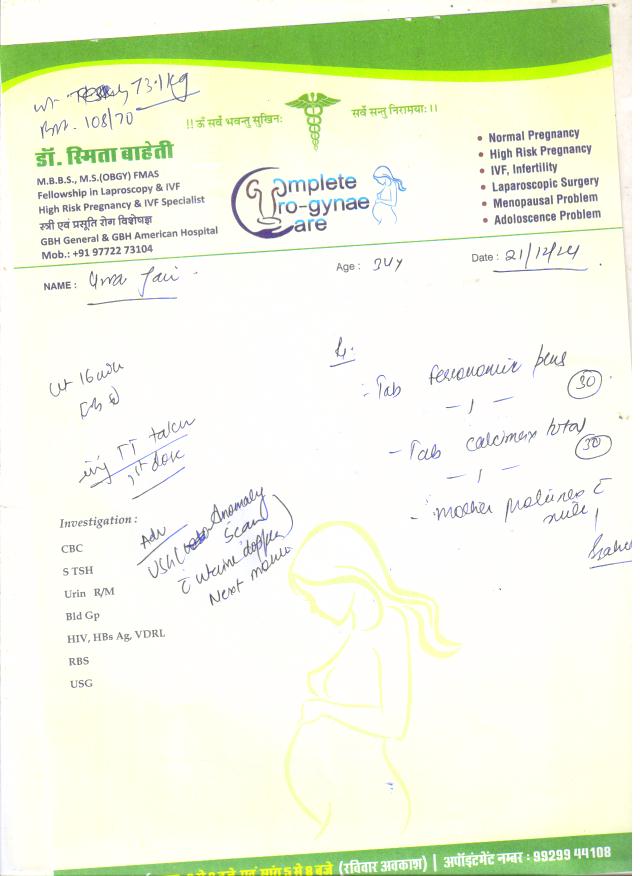 wt - 73.1 kg
108/70
!! ॐ सर्वे भवन्तु सुखिनः
सर्वे सन्तु निरामयाः ।।
डॉ. स्मिता बाहेती
M.B.B.S., M.S.(OBGY) FMAS
Fellowship in Laproscopy & IVF
High Risk Pregnancy & IVF Specialist
स्त्री एवं प्रसूति रोग विशेषज्ञ
GBH General & GBH American Hospital
Mob.: +91 97722 73104
Complete
Uro-gynae
Care
• Normal Pregnancy
• High Risk Pregnancy
• IVF, Infertility
• Laparoscopic Surgery
• Menopausal Problem
• Adoloscence Problem
NAME :
Age : 34y
Date : 21/12/24
inj TT taken
1st dose
Rx.
- Tab pens
30
- 1 -
- Tab calcimax total
30
- 1 -
- mother
Investigation :
CBC
S TSH
Urin R/M
Bld Gp
HIV, HBs Ag, VDRL
RBS
USG
Adv
USG Anomaly
Scan
c uterine doppler
Next
5 से 8 बजे (रविवार अवकाश) | अपॉइंटमेंट नम्बर : 99299 44108